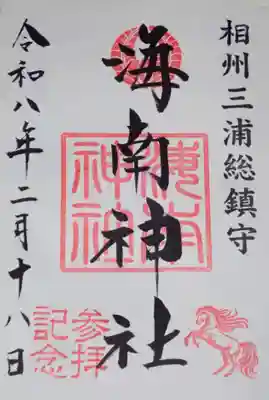 相州三浦総鎮守
海南神社
海南神社
令和八年二月十八日
参拝記念